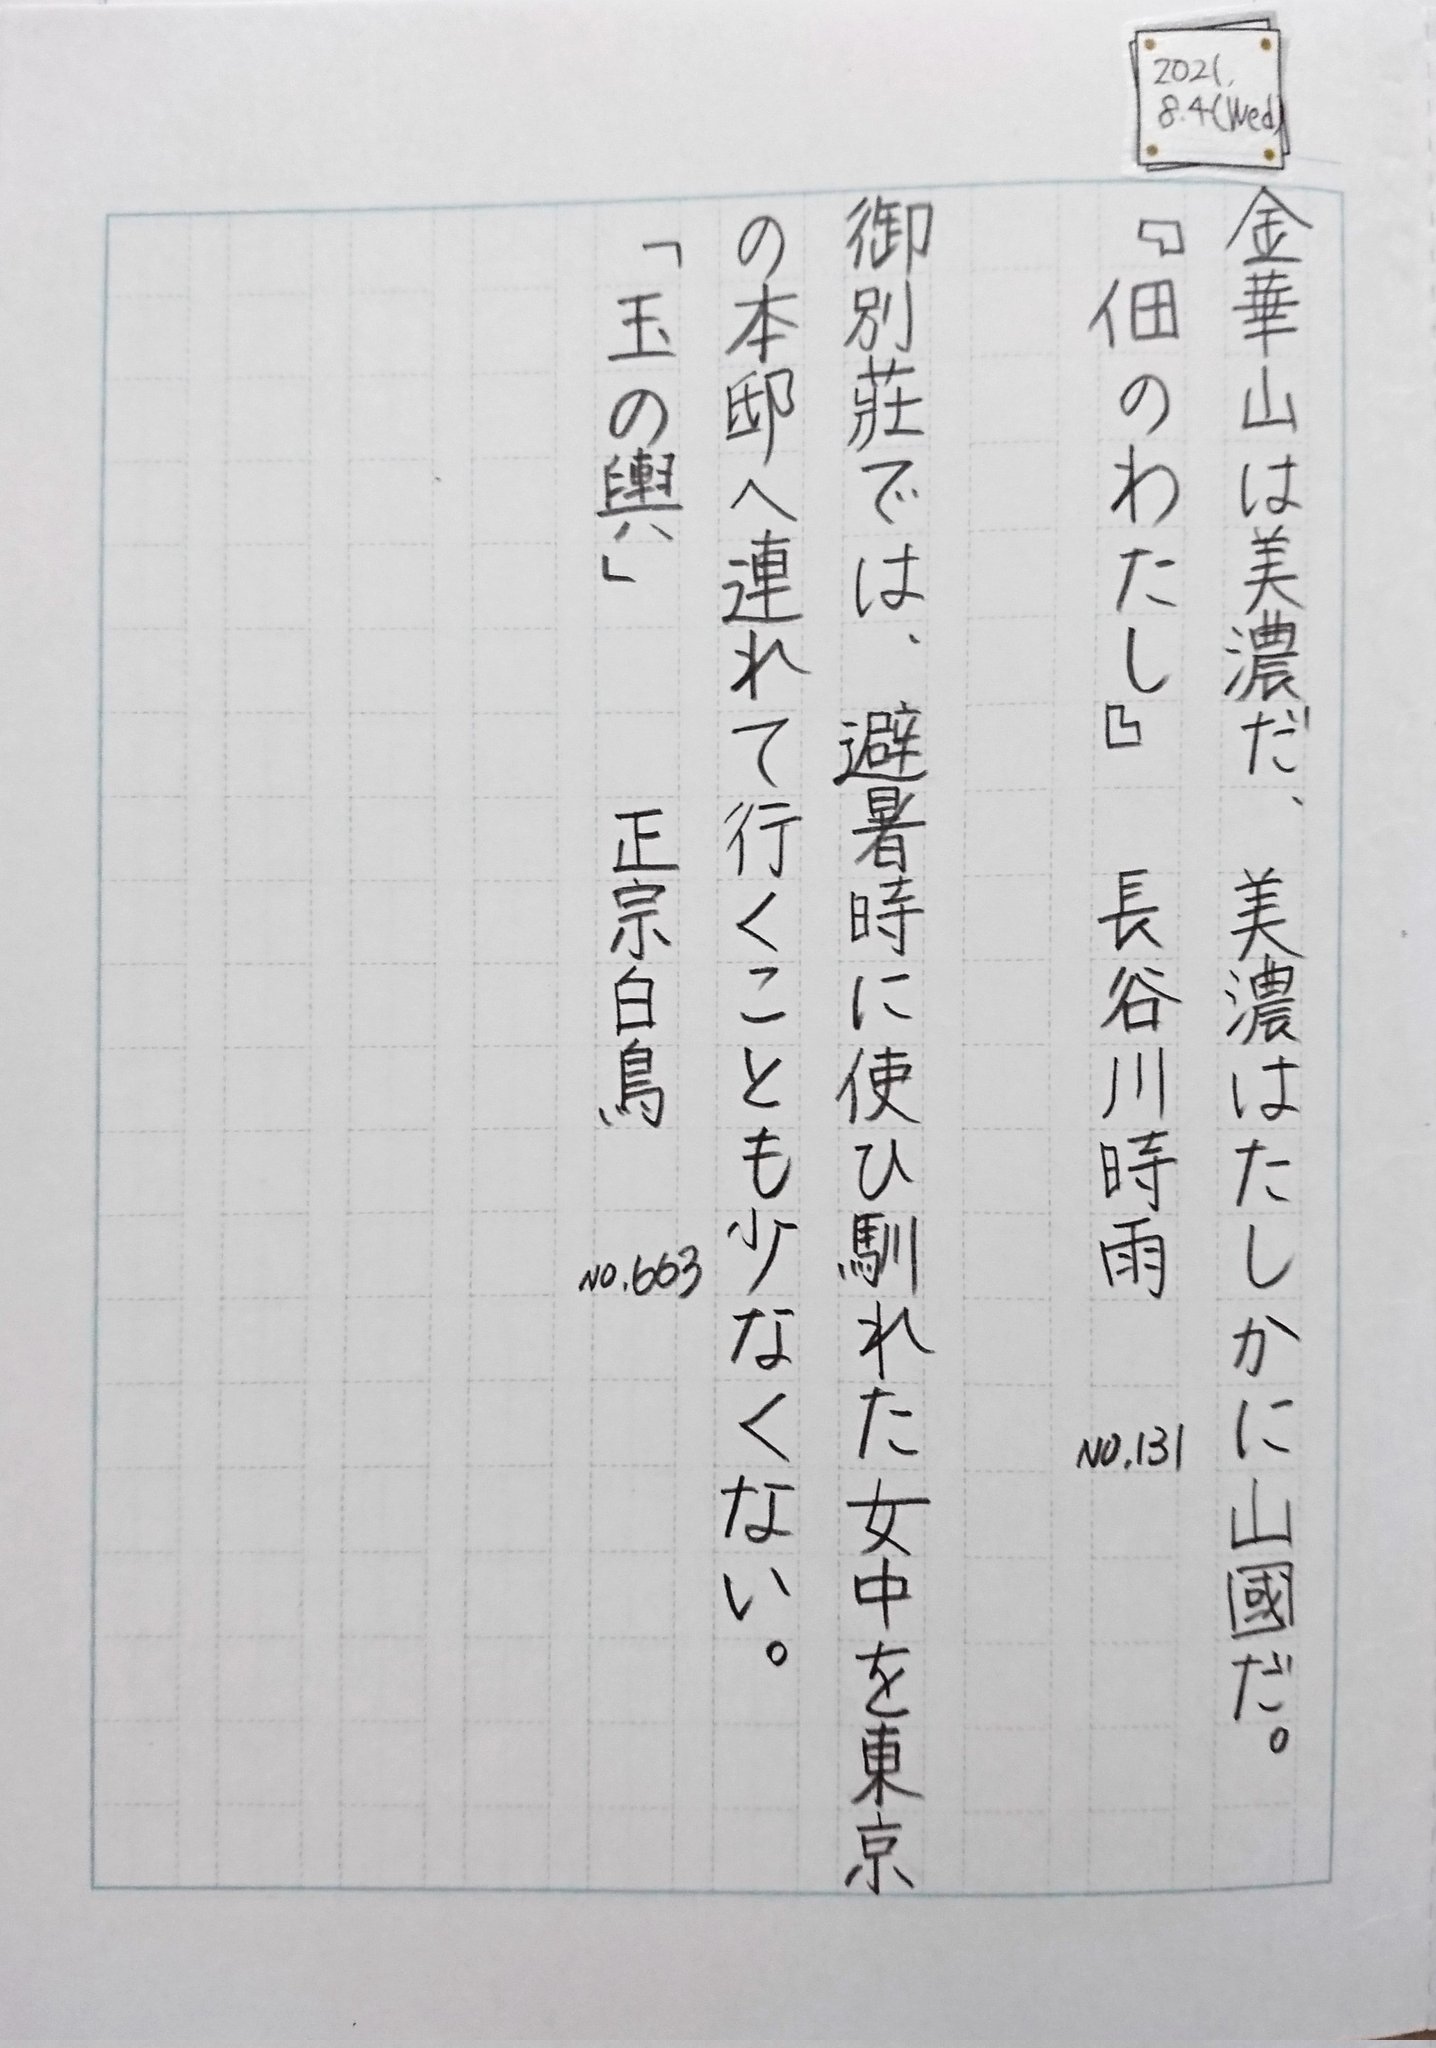 2021.
8.4(Wed)
金華山は美濃だ、美濃はたしかに山國だ。
『佃のわたし』 長谷川時雨 NO.131
御別莊では、避暑時に使ひ馴れた女中を東京
の本邸へ連れて行くことも少なくない。
「玉の輿」 正宗白鳥 NO.663